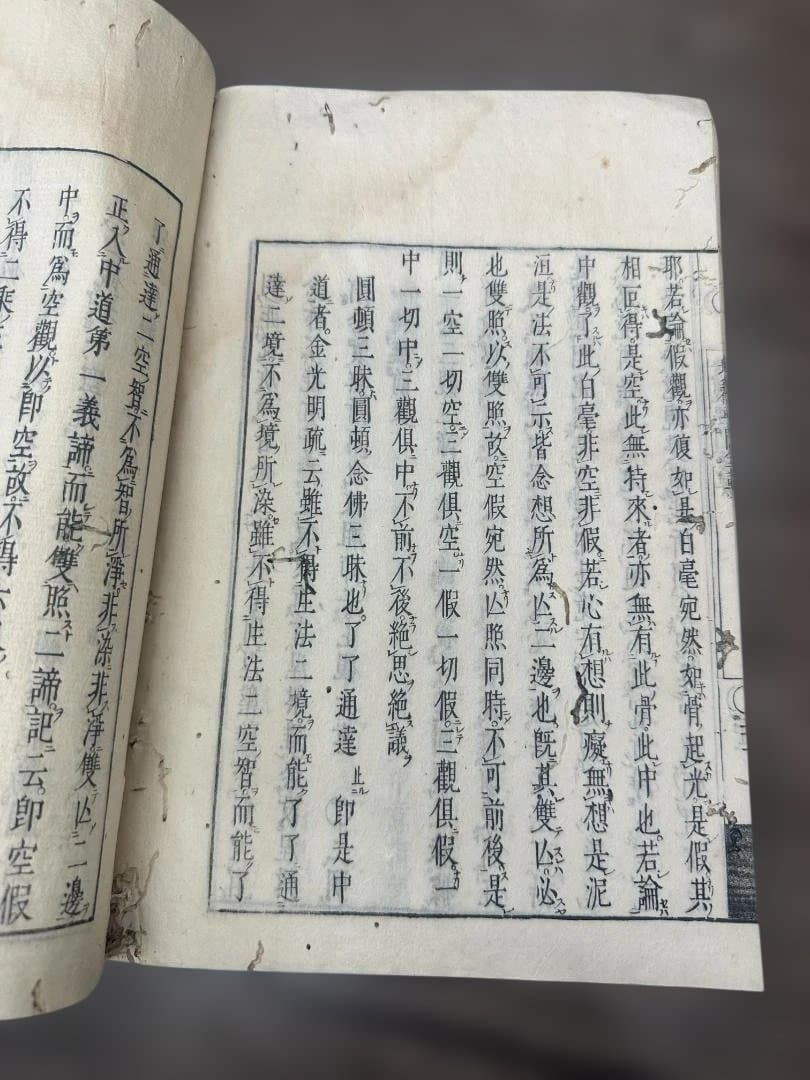 耶若論假觀亦復如是白毫宛然如骨起光是假其
相叵得是空此無待來者亦無有此骨此中也若論
中觀了此白毫非空非假若心有想則癡無想是泥
洹是法不可示皆念想所為亡二邊也既其雙亡必
也雙照以雙照故空假宛然亡照同時不可前後是
則一空一切空三觀俱空一假一切假三觀俱假一
中一切中三觀俱中不前不後絕思絕議
圓頓三昧圓頓念佛三昧也了了通達止即是中
道者金光明疏云雖不得生法二境而能了了通
達二境不為境所染雖不得生法二空智而能了
了通達二空智不為智所淨非染非淨雙亡二邊
正入中道第一義諦而能雙照二諦記云即空假
中而為空觀以即空故不得
不得二乘